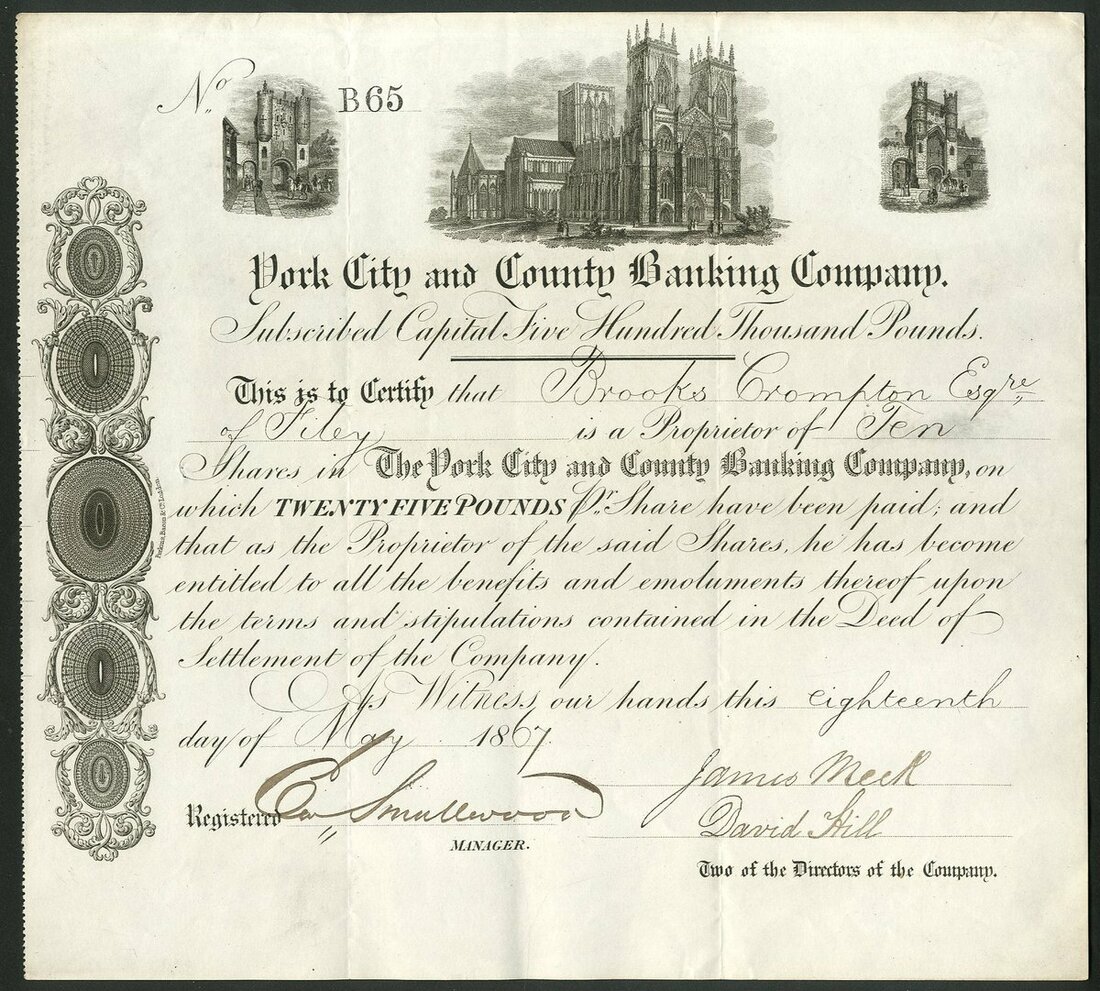 No. B65
York City and County Banking Company.
Subscribed Capital Five Hundred Thousand Pounds.
This is to Certify that Brooks Crompton Esqre
of Filey is a Proprietor of Ten
Shares in The York City and County Banking Company, on
which TWENTY FIVE POUNDS Pr. Share have been paid; and
that as the Proprietor of the said Shares, he has become
entitled to all the benefits and emoluments thereof upon
the terms and stipulations contained in the Deed of
Settlement of the Company.
As Witness our hands this eighteenth
day of May 1867.
James Meek
Registered Smallwood
David Hill
MANAGER.
Two of the Directors of the Company.
Perkins, Bacon & Co. London.